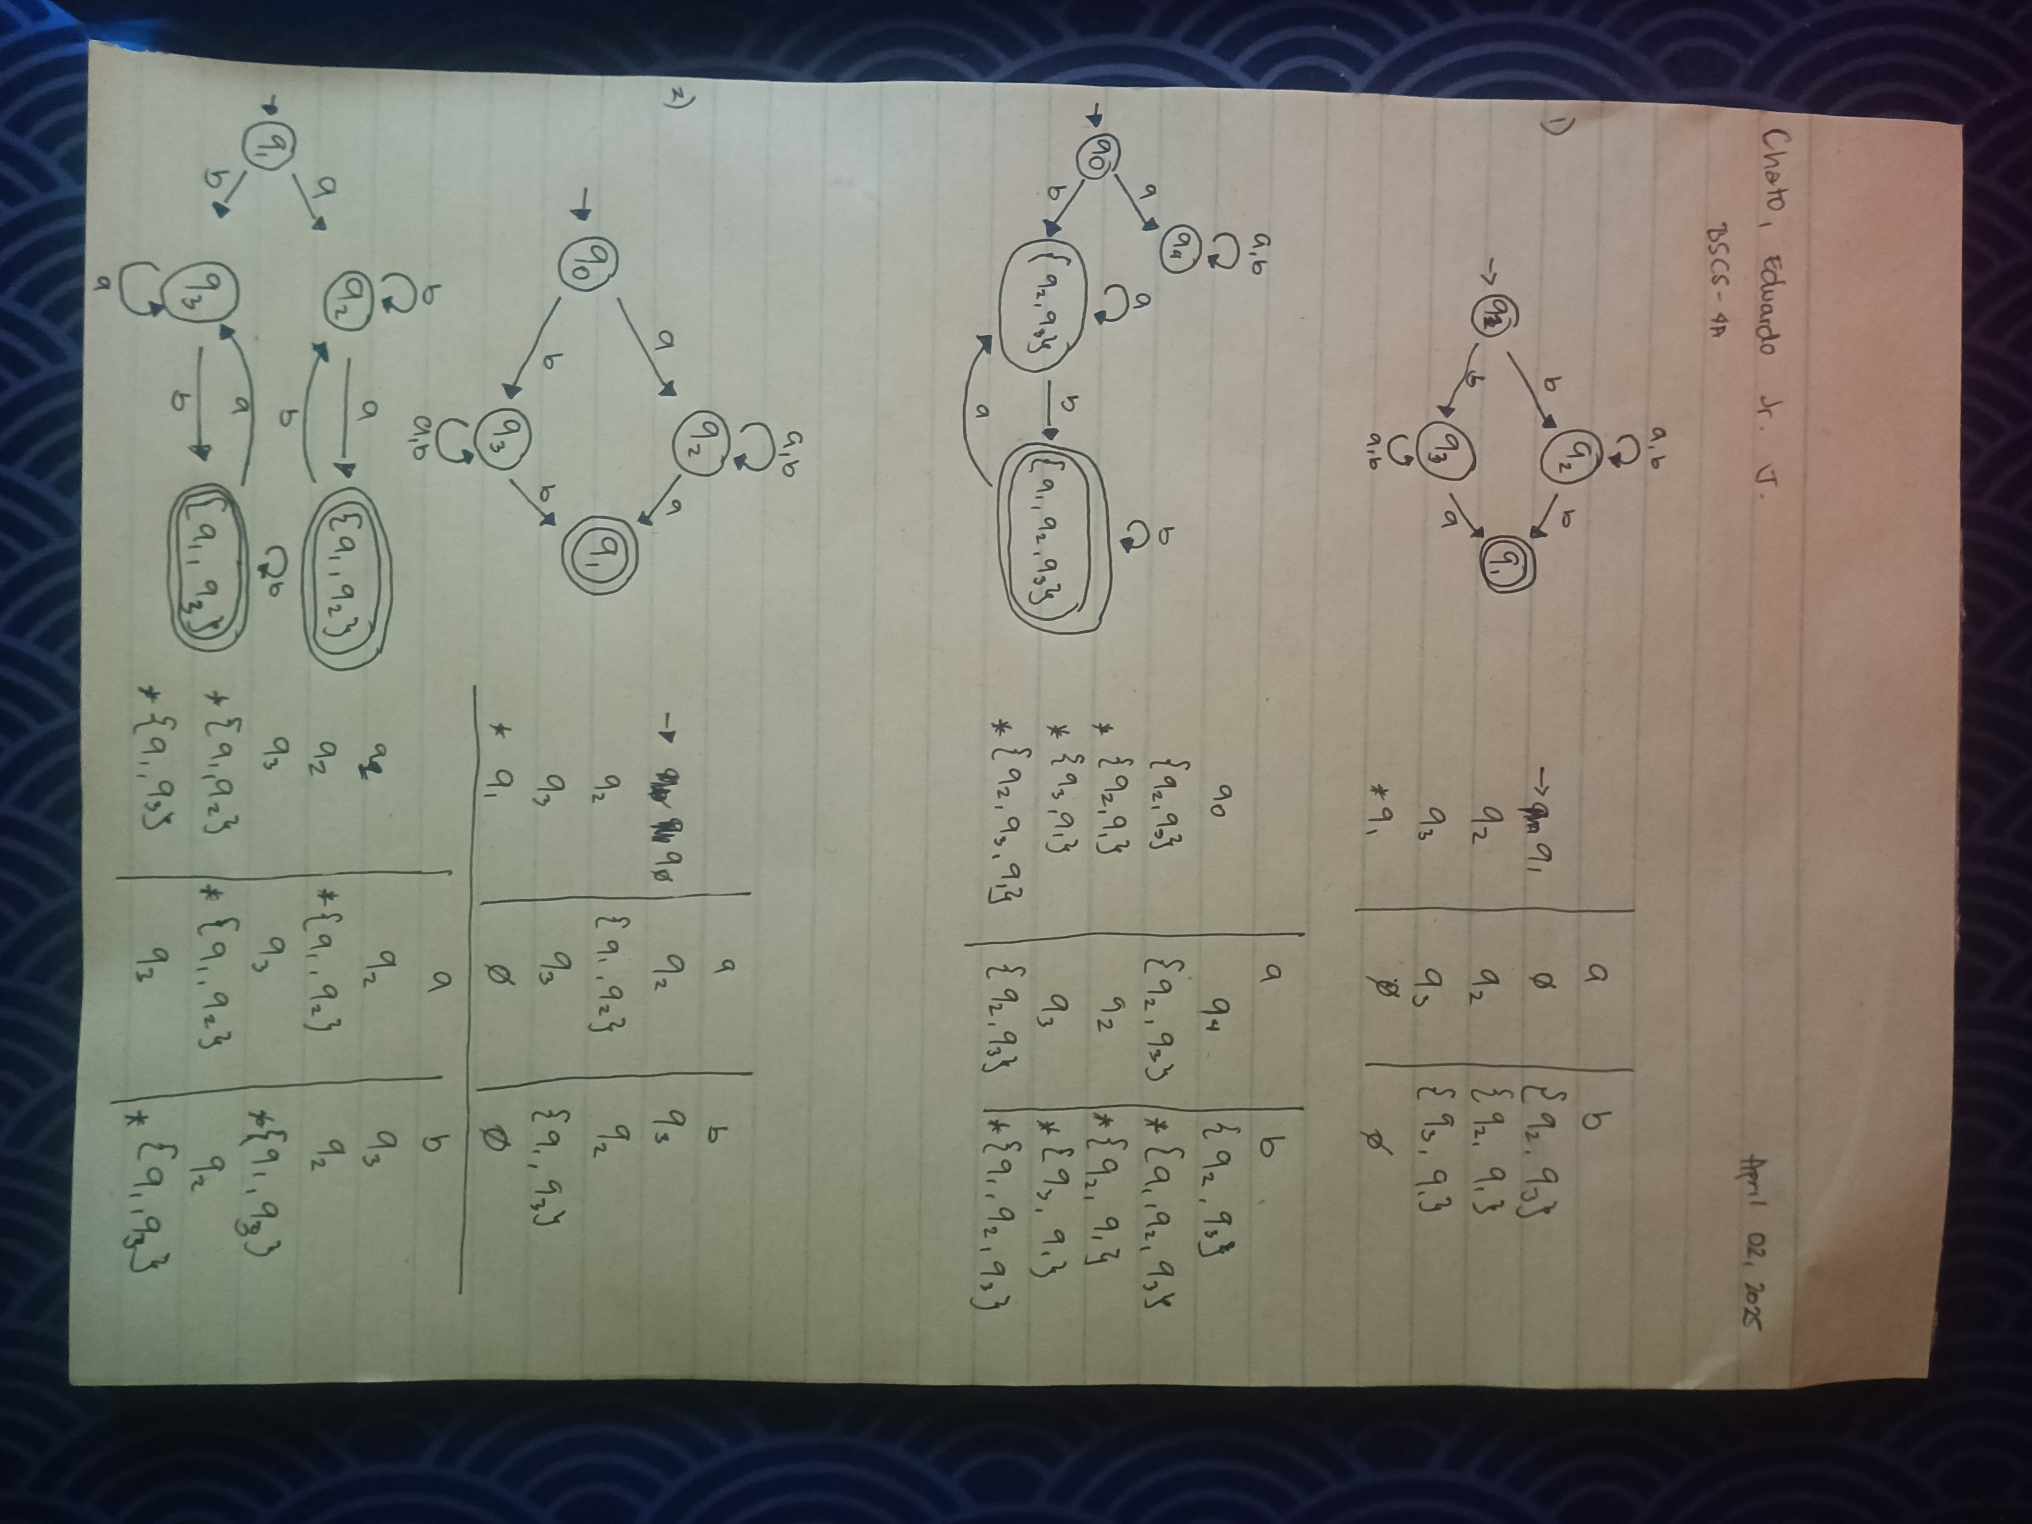 Chato, Eduardo Jr. J.
April 02, 2025
BSCS-4A
1)
a,b
q2
b
b
q1
b
q3
a
a,b
a b
→ q1 ∅ {q2, q3}
q2 q2 {q2, q1}
q3 q3 {q3, q1}
* q1 ∅ ∅
a,b
q4
a
a
b
q0
b
{q2,q3}
b
{q1,q2,q3}
a
a b
q0 q4 {q2,q3}
{q2,q3} {q2,q3} *{q1,q2,q3}
* {q2,q1} q2 *{q2, q1}
* {q3,q1} q3 *{q3, q1}
* {q2,q3,q1} {q2,q3} *{q1,q2,q3}
2)
a,b
q2
a
a
q0
q1
b
b
q3
a,b
a b
→ q0 q2 q3
q2 {q1,q2} q2
q3 q3 {q1,q3}
* q1 ∅ ∅
b
q2
a
{q1,q2}
a
b
q1
b
a
b
q3
b
{q1,q3}
a
a b
q2 q3
q2 *{q1,q2} q2
q3 q3 *{q1,q3}
*{q1,q2} *{q1,q2} q2
*{q1,q3} q3 *{q1,q3}